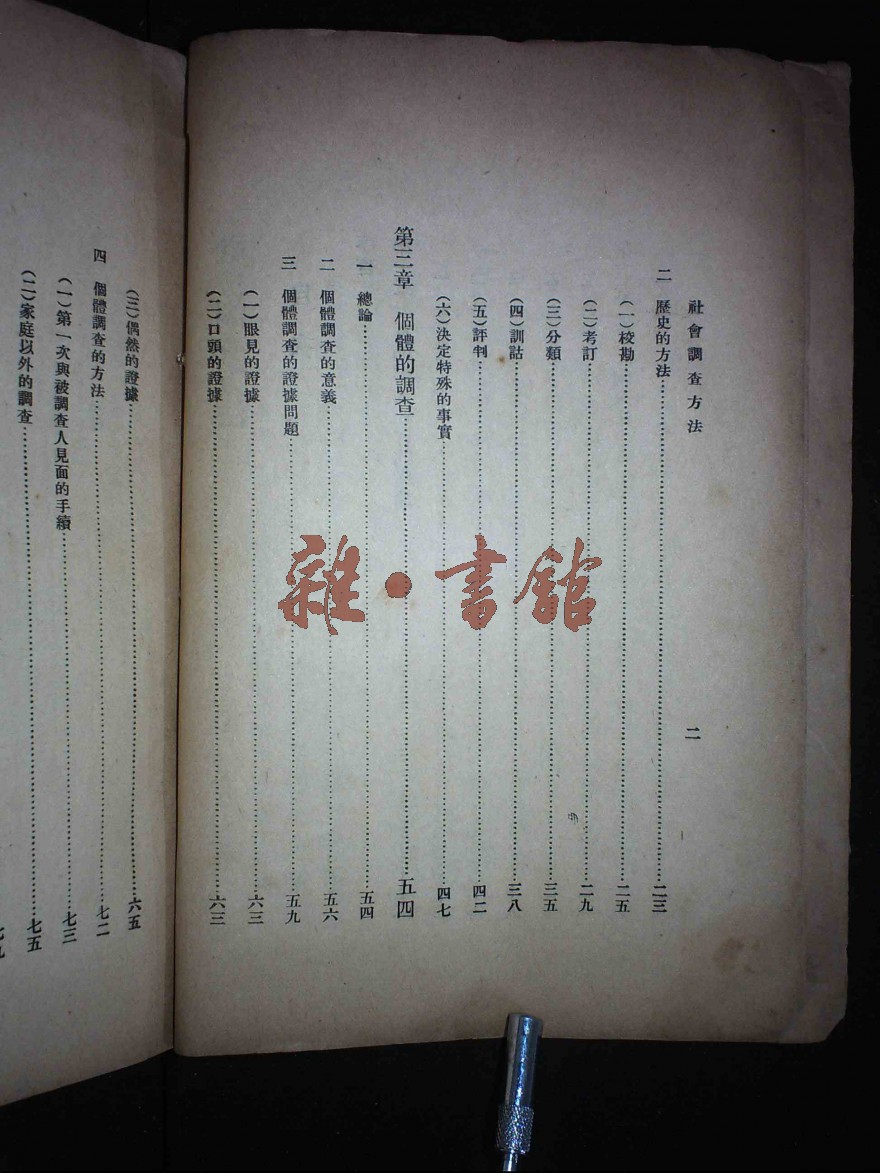 社會調查方法
二
二 歷史的方法……二三
（一）校勘……二五
（二）考訂……二九
（三）分類……三五
（四）訓詁……三八
（五）評判……四二
（六）決定特殊的事實……四七
第三章 個體的調查……五四
一 總論……五四
二 個體調查的意義……五六
三 個體調查的證據問題……五九
（一）眼見的證據……六三
（二）口頭的證據……六三
（三）偶然的證據……六五
四 個體調查的方法……七二
（一）第一次與被調查人見面的手續……七三
（二）家庭以外的調查……七五
雜·書館